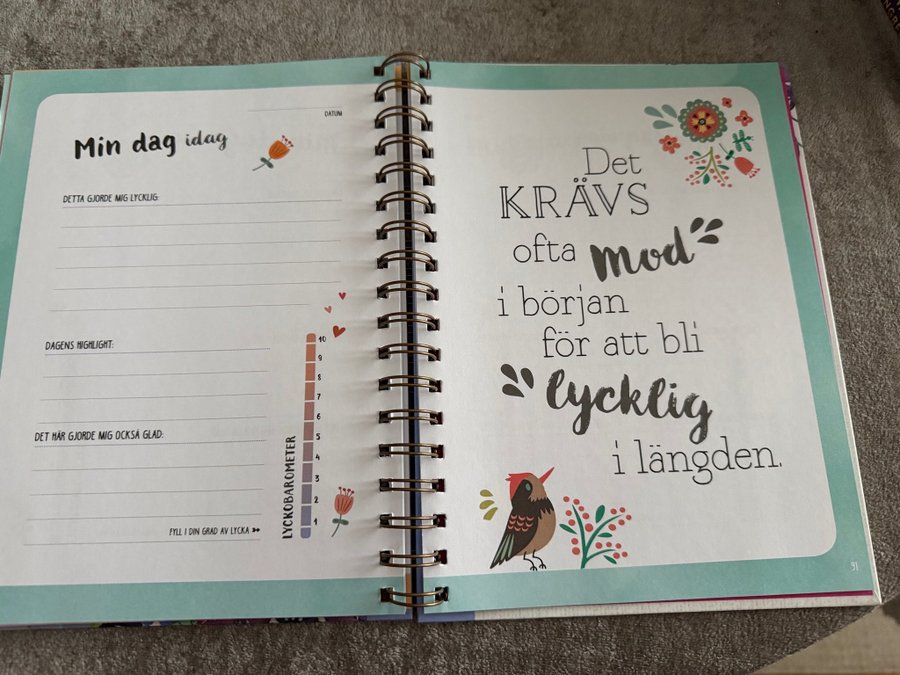 DATUM
Min dag idag
DETTA GJORDE MIG LYCKLIG:
DAGENS HIGHLIGHT:
DET HÄR GJORDE MIG OCKSÅ GLAD:
FYLL I DIN GRAD AV LYCKA
LYCKOBAROMETER
10
9
8
7
6
5
4
3
2
1
Det
KRÄVS
ofta mod
i början
för att bli
lycklig
i längden.
91